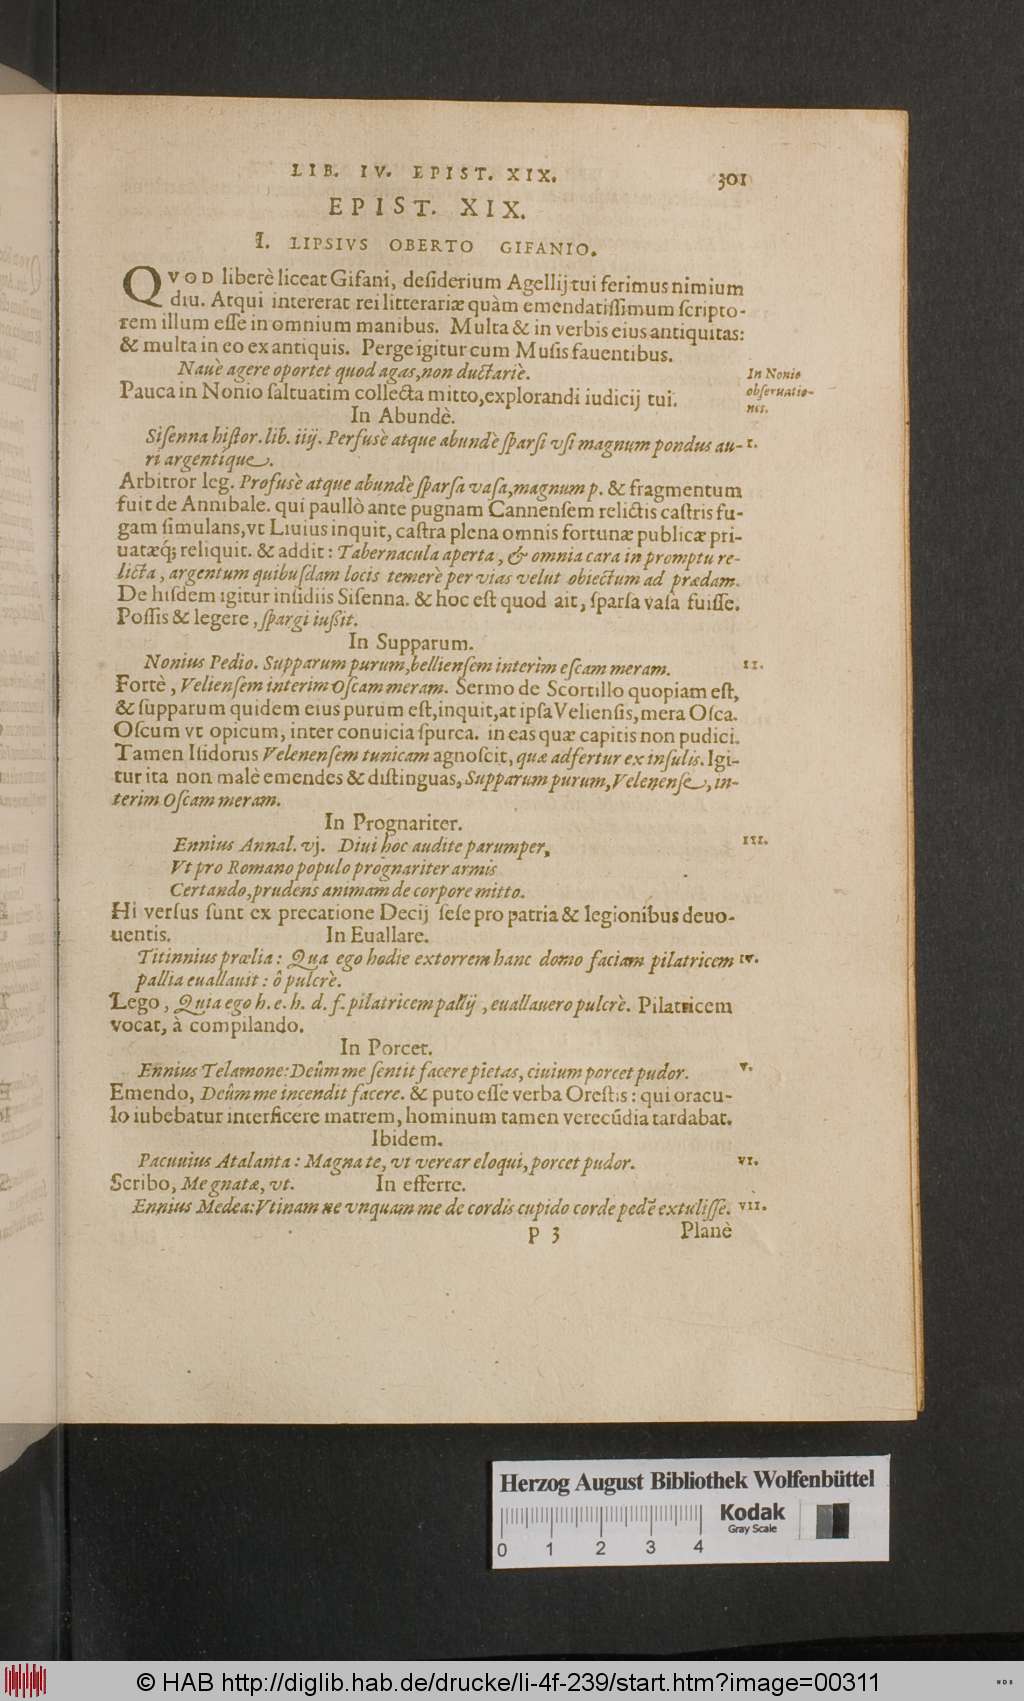 LIB. IV. EPIST. XIX. 301
EPIST. XIX.
I. LIPSIVS OBERTO GIFANIO.
QVOD liberè liceat Gifani, desiderium Agellij tui ferimus nimium
diu. Atqui intererat rei litterariæ quàm emendatissimum scripto-
rem illum esse in omnium manibus. Multa & in verbis eius antiquitas:
& multa in eo ex antiquis. Perge igitur cum Musis fauentibus.
Nauè agere oportet quod agas, non ductariè.
In Nonio
obseruatio-
nes.
Pauca in Nonio saltuatim collecta mitto, explorandi iudicij tui.
In Abundè.
Sisenna histor. lib. iiij. Perfusè atque abundè sparsi vsi magnum pondus au- I.
ri argentique.
Arbitror leg. Profusè atque abundè sparsa vasa, magnum p. & fragmentum
fuit de Annibale. qui paullò ante pugnam Cannensem relictis castris fu-
gam simulans, vt Liuius inquit, castra plena omnis fortunæ publicæ pri-
uatæq́; reliquit. & addit: Tabernacula aperta, & omnia cara in promptu re-
licta, argentum quibusdam locis temerè per vias velut obiectum ad prædam.
De hisdem igitur insidiis Sisenna. & hoc est quod ait, sparsa vasa fuisse.
Possis & legere, spargi iussit.
In Supparum.
Nonius Pedio. Supparum purum, belliensem interim escam meram. II.
Fortè, Veliensem interim Oscam meram. Sermo de Scortillo quopiam est,
& supparum quidem eius purum est, inquit, at ipsa Veliensis, mera Osca.
Oscum vt opicum, inter conuicia spurca. in eas quæ capitis non pudici.
Tamen Isidorus Velenensem tunicam agnoscit, quæ adfertur ex insulis. Igi-
tur ita non malè emendes & distinguas, Supparum purum, Velenense, in-
terim Oscam meram.
In Prognariter.
Ennius Annal. vj. Diui hoc audite parumper, III.
Vt pro Romano populo prognariter armis
Certando, prudens animam de corpore mitto.
Hi versus sunt ex precatione Decij sese pro patria & legionibus deuo-
uentis. In Euallare.
Titinnius prælia: Qua ego hodie extorrem hanc domo faciam pilatricem IV.
pallia euallauit: ô pulcrè.
Lego, Quia ego h. e. h. d. f. pilatricem pallij, euallauero pulcrè. Pilatricem
vocat, à compilando.
In Porcet.
Ennius Telamone: Deûm me sentit facere pietas, ciuium porcet pudor. V.
Emendo, Deûm me incendit facere. & puto esse verba Orestis: qui oracu-
lo iubebatur interficere matrem, hominum tamen verecūdia tardabat.
Ibidem.
Pacuuius Atalanta: Magna te, vt verear eloqui, porcet pudor. VI.
Scribo, Me gnatæ, vt. In efferre.
Ennius Medea: Vtinam ne vnquam me de cordis cupido corde pedē extulisse. VII.
P 3 Planè
Herzog August Bibliothek Wolfenbüttel
Kodak
Gray Scale
0 1 2 3 4
© HAB http://diglib.hab.de/drucke/li-4f-239/start.htm?image=00311